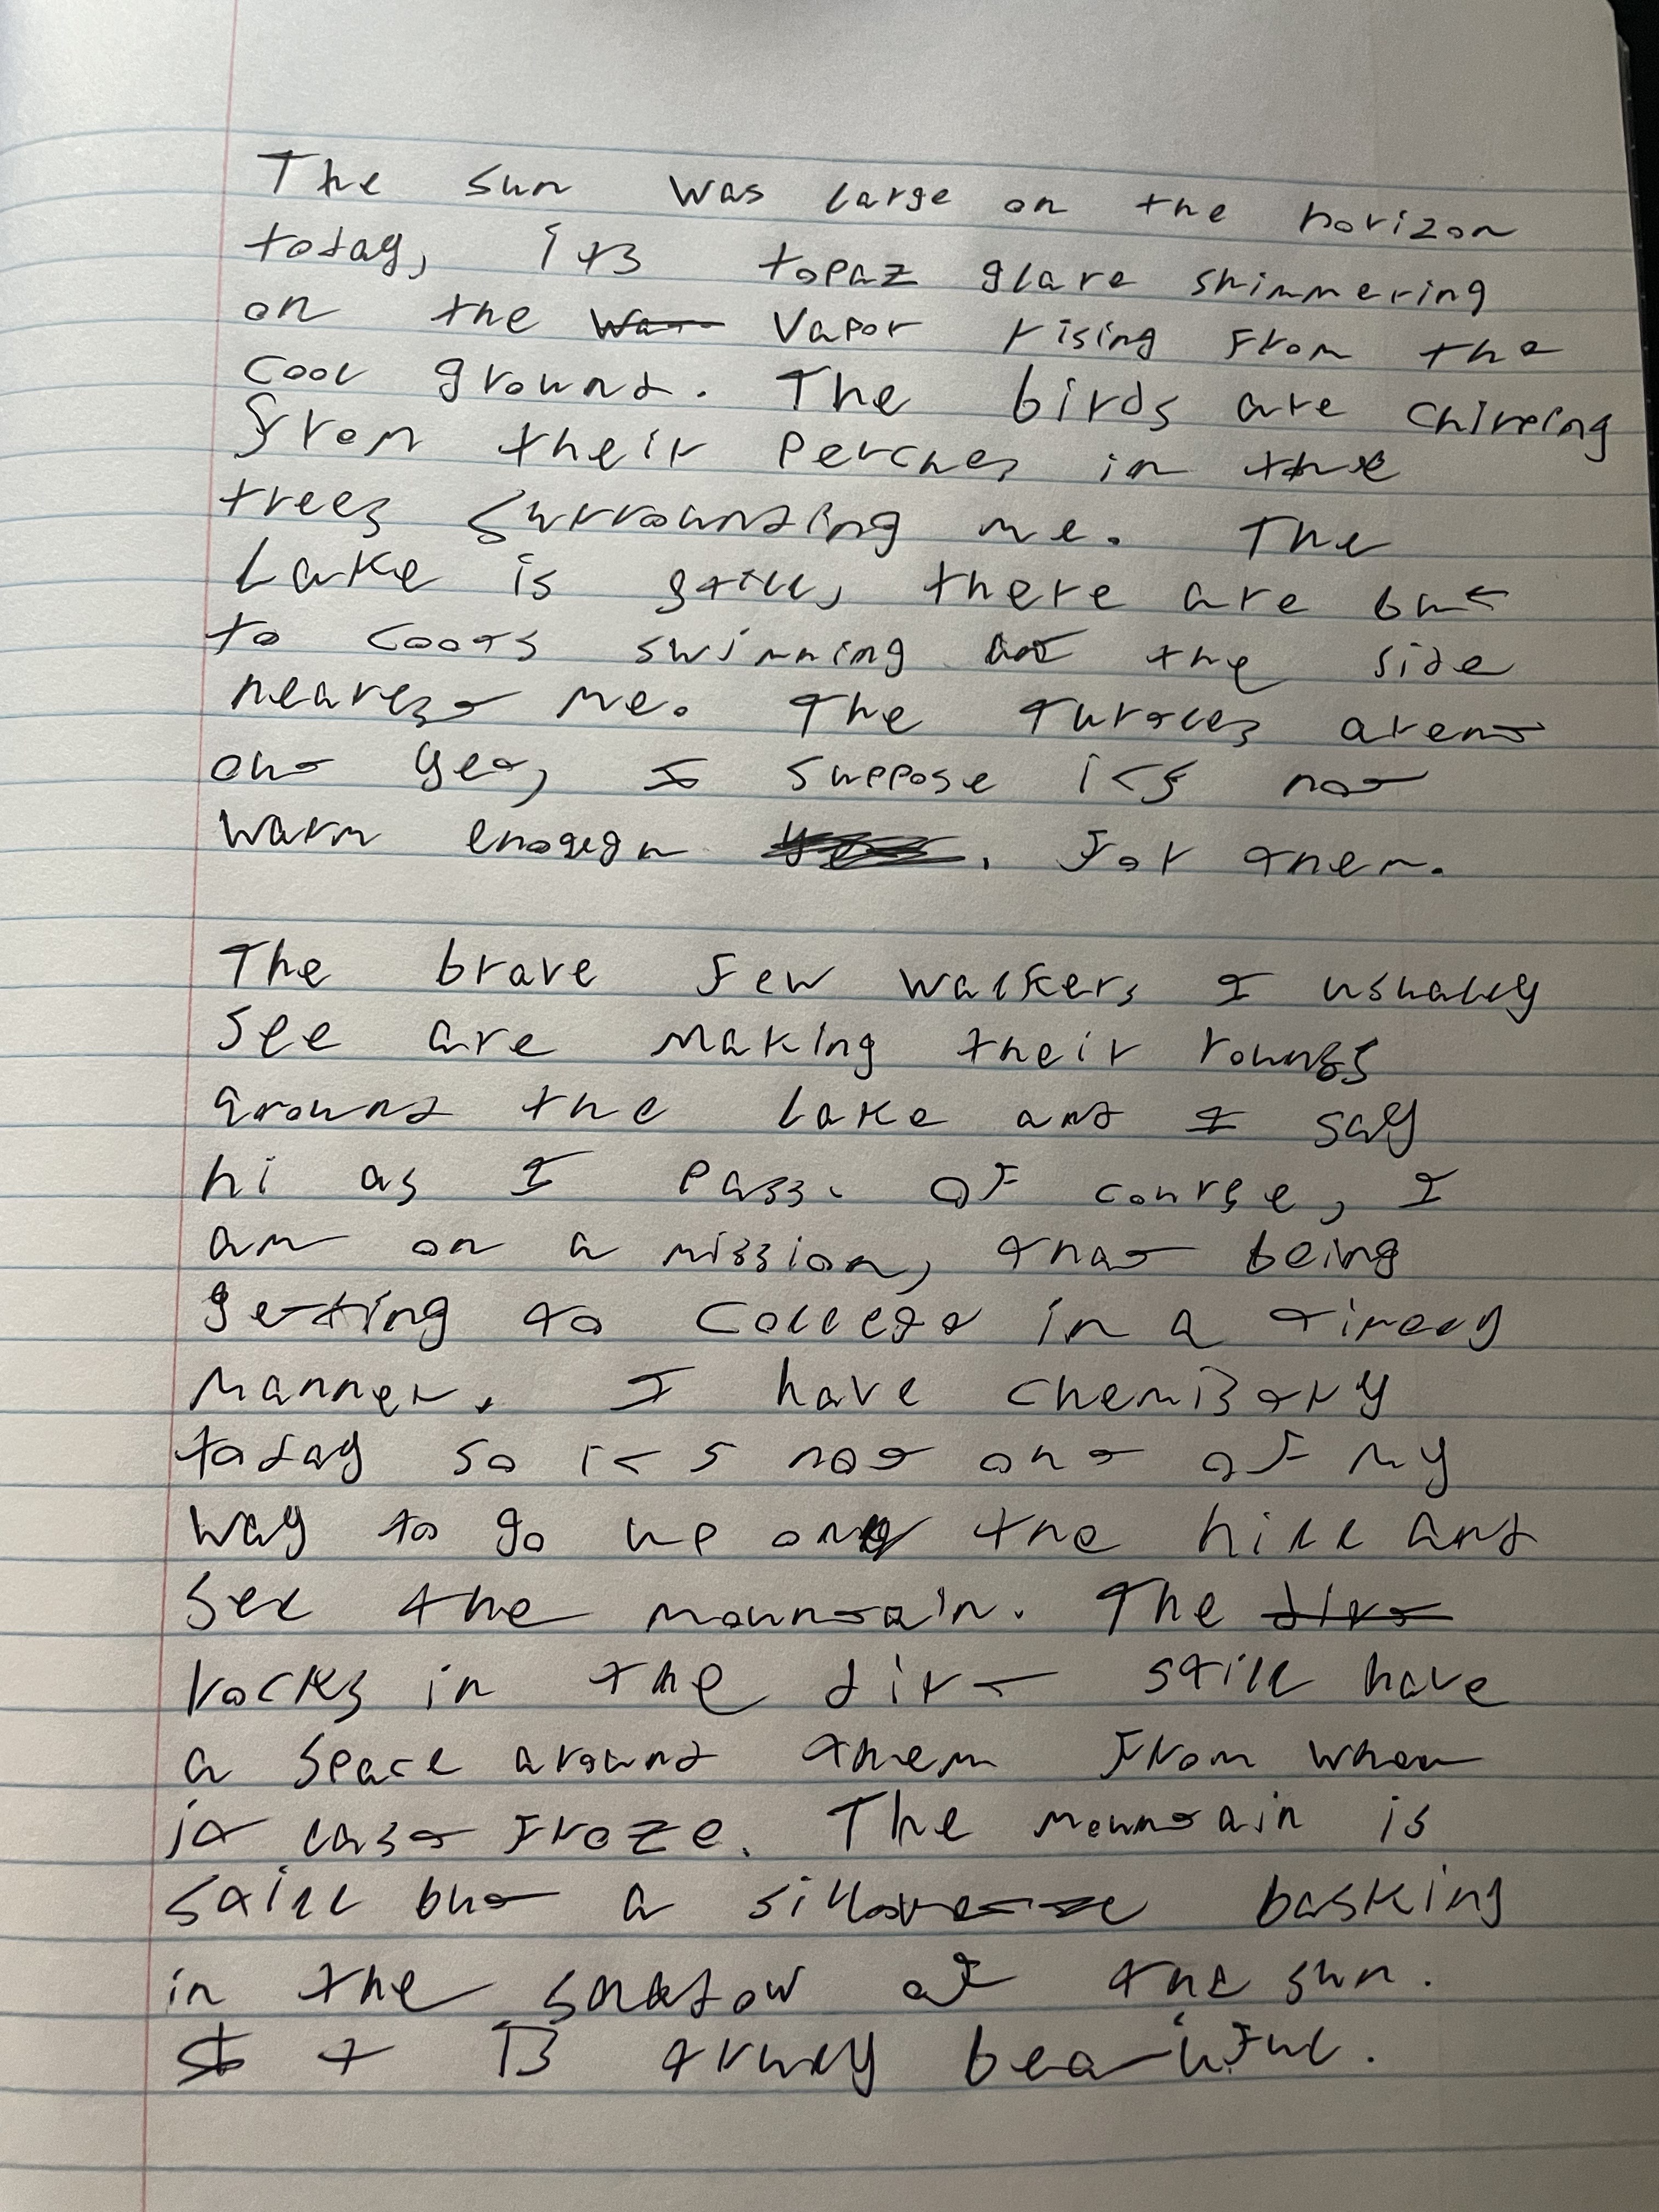 The sun was large on the horizon
today, its topaz glare shimmering
on the vapor rising from the
cool ground. The birds are chirping
from their perches in the
trees surrounding me. The
Lake is still, there are but
to coots swimming at the side
nearest me. The Turtles arent
out yet, I suppose its not
warm enough . For them.
The brave few walkers I usually
see are making their rounds
around the lake and I say
hi as I pass. Of course, I
am on a mission, that being
getting to college in a timely
manner. I have chemistry
today so its not out of my
way to go up the hill and
see the mountain. The
rocks in the dirt still have
a space around them from when
it last froze. The mountain is
still but a basking
in the shadow of the sun.
It is truly beautiful.